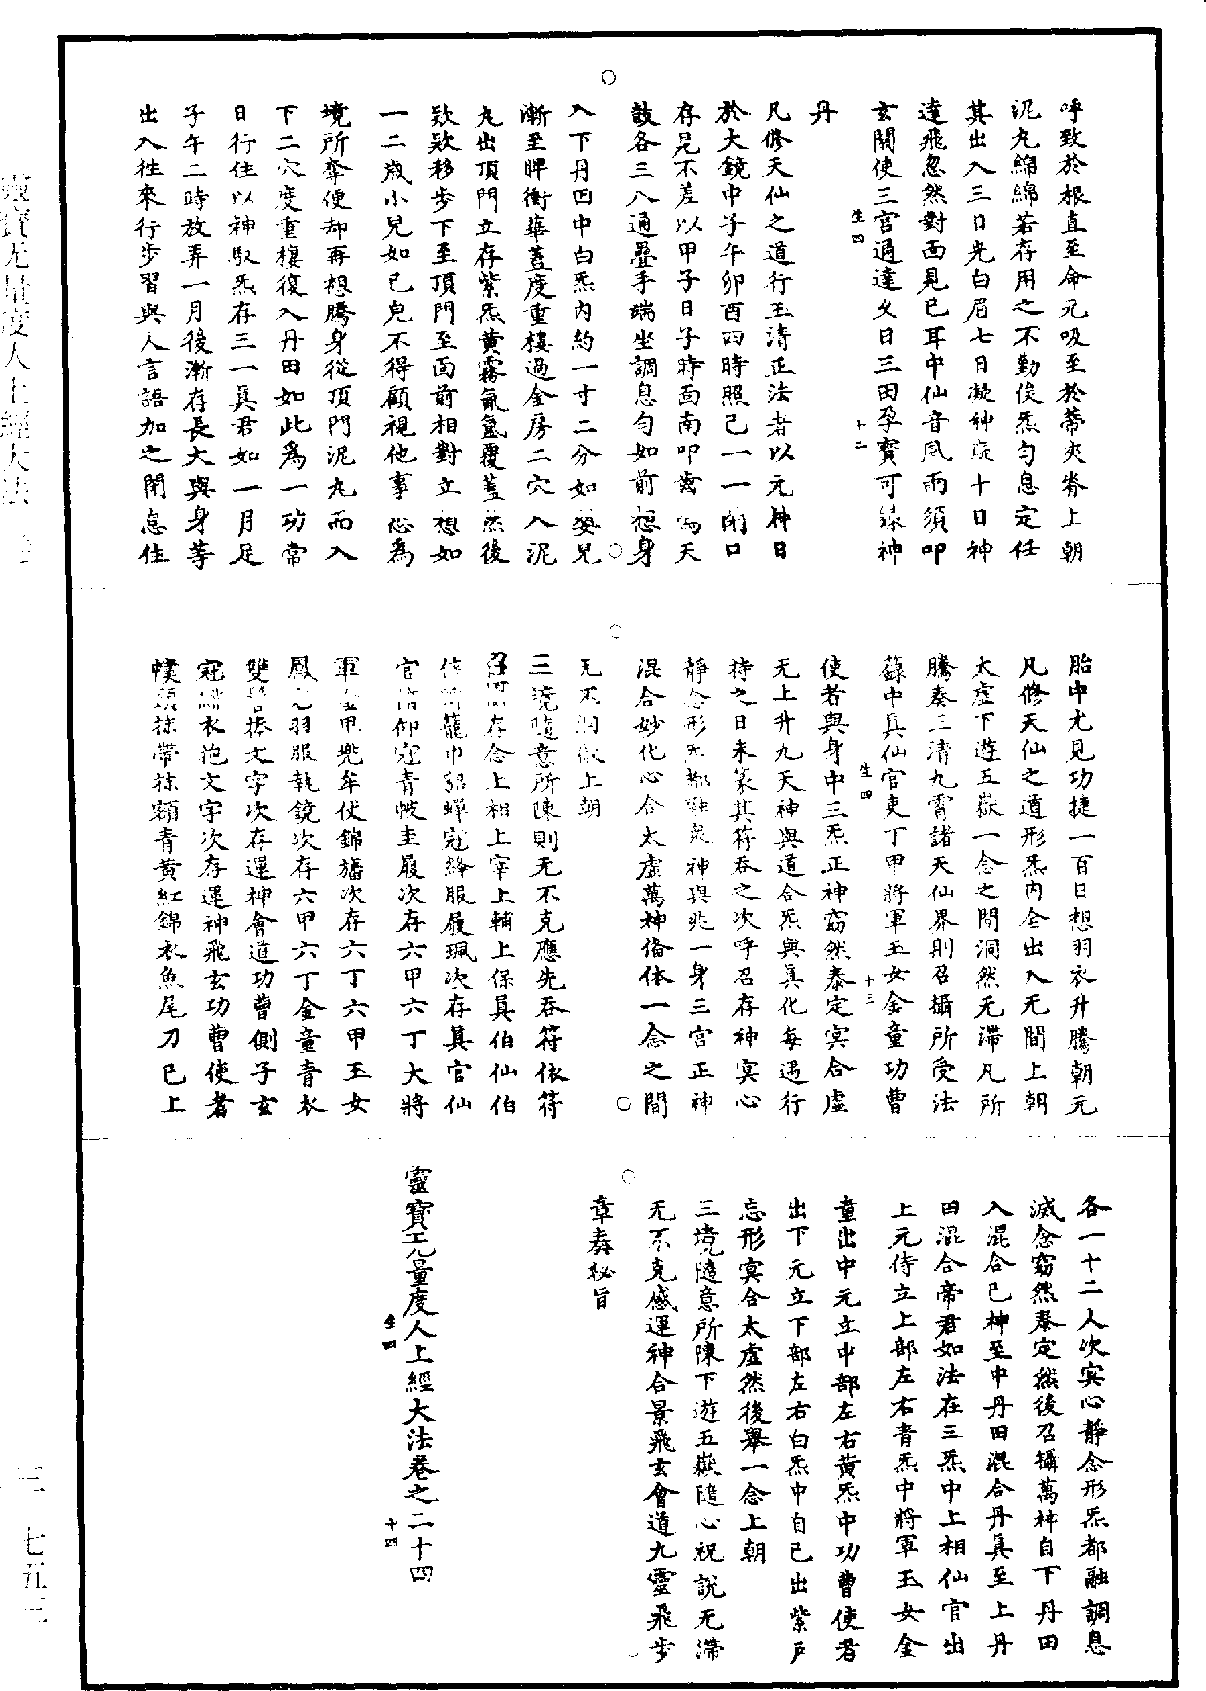 呼致於根直至命元吸至於蒂夾脊上朝
泥丸綿綿若存用之不勤俟炁勻息定任
其出入三日光白眉七日凝神庭十日神
達飛忽然對面見已耳中仙音風雨須叩
玄關使三宮通達久日三田孕寶可鍊神
生四
十二
丹
凡修天仙之道行玉清正法者以元神日
於大鏡中子午卯酉四時照己一一閉口
存見不差以甲子日子時面南叩齒鳴天
鼓各三八通疊手端坐調息勻如前想身
入下丹田中白炁內約一寸二分如嬰兒
漸至脾衡華蓋度重樓過金房二穴入泥
丸出頂門立存紫炁黃霧氤氳覆蓋然後
欵欵移步下至頂門至面前相對立想如
一二歲小兒如己皃不得顧視他事恐為
境所牽便却再想騰身從頂門泥丸而入
下二穴度重樓復入丹田如此為一功常
日行住以神馭炁存三一真君如一月足
子午二時放弄一月後漸存長大與身等
出入往來行步習與人言語加之閉息住
胎中尤見功捷一百日想羽衣升騰朝元
凡修天仙之道形炁內全出入无間上朝
太虛下遊五嶽一念之間洞然无滯凡所
騰奏三清九霄諸天仙界則召攝所受法
籙中真仙官吏丁甲將軍玉女金童功曹
生四
十三
使者與身中三炁正神窈然泰定冥合虛
无上升九天神與道合炁與真化每遇行
持之日朱篆其符吞之次呼召存神冥心
靜念形炁都融炁神與兆一身三宮正神
混合妙化心合太虛萬神俻体一念之間
无不洞徹上朝
三境隨意所陳則无不克應先吞符依符
存念上相上宰上輔上保真伯仙伯
籠巾貂蟬冠絳服履珮次存真官仙
官 仰冠青帔圭履次存六甲六丁大將
軍金甲兜牟仗錦旛次存六丁六甲玉女
鳳 羽服執鏡次存六甲六丁金童青衣
雙髻捧文字次存運神會道功曹側子玄
冠 衣抱文字次存運神飛玄功曹使者
幞頭抹帶抹額青黃紅錦衣魚尾刀已上
各一十二人次冥心靜念形炁都融調息
滅念窈然泰定然後召攝萬神自下丹田
入混合已神至中丹田混合丹真至上丹
田混合帝君如法在三炁中上相仙官出
上元侍立上部左右青炁中將軍玉女金
童出中元立中部左右黃炁中功曹使者
出下元立下部左右白炁中自己出紫戶
忘形冥合太虛然後舉一念上朝
三境隨意所陳下遊五嶽隨心祝說无滯
无不克感運神合景飛玄會道九靈飛步
章奏秘旨
靈寶无量度人上經大法卷之二十四
生四
十四
靈寶无量度人上經大法
三 七五三